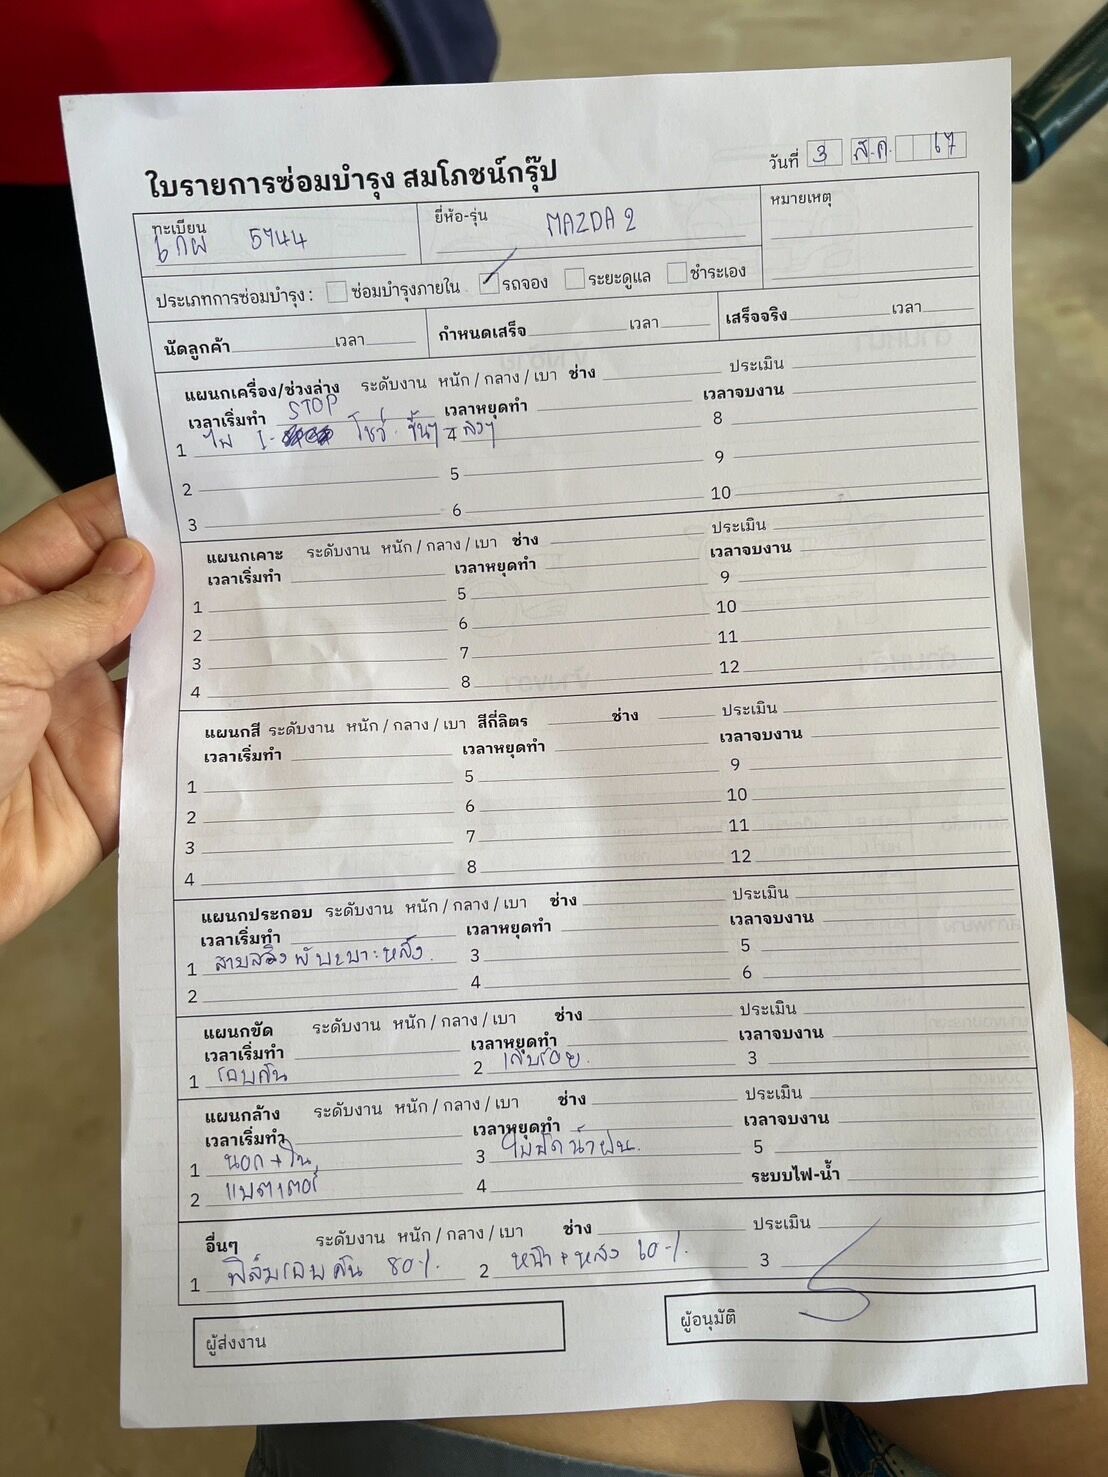 ใบรายการซ่อมบำรุง สมโภชน์กรุ๊ป
วันที่ 3 ส.ค. 67
ทะเบียน 6 กผ 5744
ยี่ห้อ-รุ่น MAZDA 2
หมายเหตุ
ประเภทการซ่อมบำรุง : ซ่อมบำรุงภายใน รถจอง ระยะดูแล ชำระเอง
นัดลูกค้า เวลา กำหนดเสร็จ เวลา เสร็จจริง เวลา
แผนกเครื่อง/ช่วงล่าง ระดับงาน หนัก / กลาง / เบา ช่าง ประเมิน
เวลาเริ่มทำ เวลาหยุดทำ เวลาจบงาน
1 ไฟ I-STOP โชว์ ขึ้นๆ ลงๆ 4 8
2 5 9
3 6 10
แผนกเคาะ ระดับงาน หนัก / กลาง / เบา ช่าง ประเมิน
เวลาเริ่มทำ เวลาหยุดทำ เวลาจบงาน
1 5 9
2 6 10
3 7 11
4 8 12
แผนกสี ระดับงาน หนัก / กลาง / เบา สีกี่ลิตร ช่าง ประเมิน
เวลาเริ่มทำ เวลาหยุดทำ เวลาจบงาน
1 5 9
2 6 10
3 7 11
4 8 12
แผนกประกอบ ระดับงาน หนัก / กลาง / เบา ช่าง ประเมิน
เวลาเริ่มทำ เวลาหยุดทำ เวลาจบงาน
1 หลัง 3 5
2 4 6
แผนกขัด ระดับงาน หนัก / กลาง / เบา ช่าง ประเมิน
เวลาเริ่มทำ เวลาหยุดทำ เวลาจบงาน
1 รอบคัน 2 เก็บรอย 3
แผนกล้าง ระดับงาน หนัก / กลาง / เบา ช่าง ประเมิน
เวลาเริ่มทำ เวลาหยุดทำ เวลาจบงาน
1 นอก + ใน 3 ใบปัดน้ำฝน 5
2 แบตเตอรี่ 4 ระบบไฟ-น้ำ
อื่นๆ ระดับงาน หนัก / กลาง / เบา ช่าง ประเมิน
1 ฟิล์มรอบคัน 80% 2 หน้า + หลัง 60% 3
ผู้ส่งงาน ผู้อนุมัติ